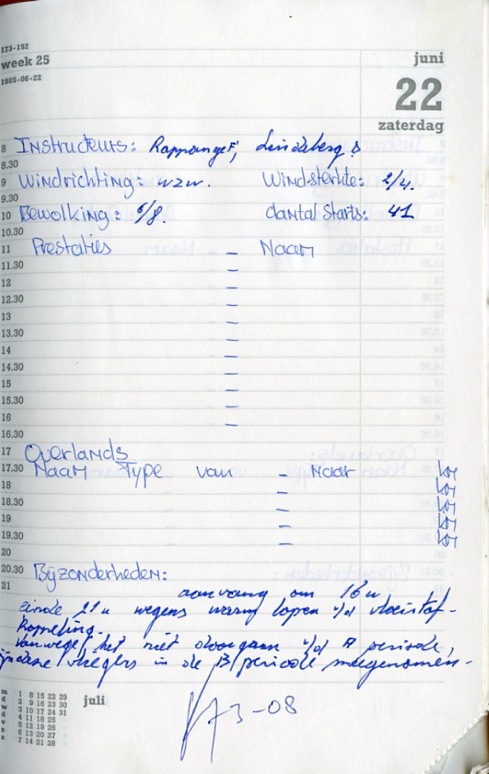 173-192
week 25
1985-06-22
juni
22
zaterdag
8 Instructeurs: Rappange, Lindeberg
8.30
9 Windrichting: wzw. Windsterkte: 2/4.
9.30
10 Bewolking: 6/8. Aantal Starts: 41
10.30
11 Prestaties - Naam
11.30 -
12 -
12.30 -
13 -
13.30 -
14 -
14.30 -
15 -
15.30 -
16 -
16.30
17 Overlands
17.30 Naam Type van - Naar km
18 - km
18.30 - km
19 - km
19.30 - km
20
20.30 Bijzonderheden:
21 aanvang om 16 u
einde 21 u wegens warm lopen v/d vloeistof-
koppeling.
Vanwege het niet doorgaan v/d A periode,
zijn deze vliegers in de B periode meegenomen.
73-08
m 1 8 15 22 29
d 2 9 16 23 30
w 3 10 17 24 31
d 4 11 18 25
v 5 12 19 26
z 6 13 20 27
z 7 14 21 28
juli